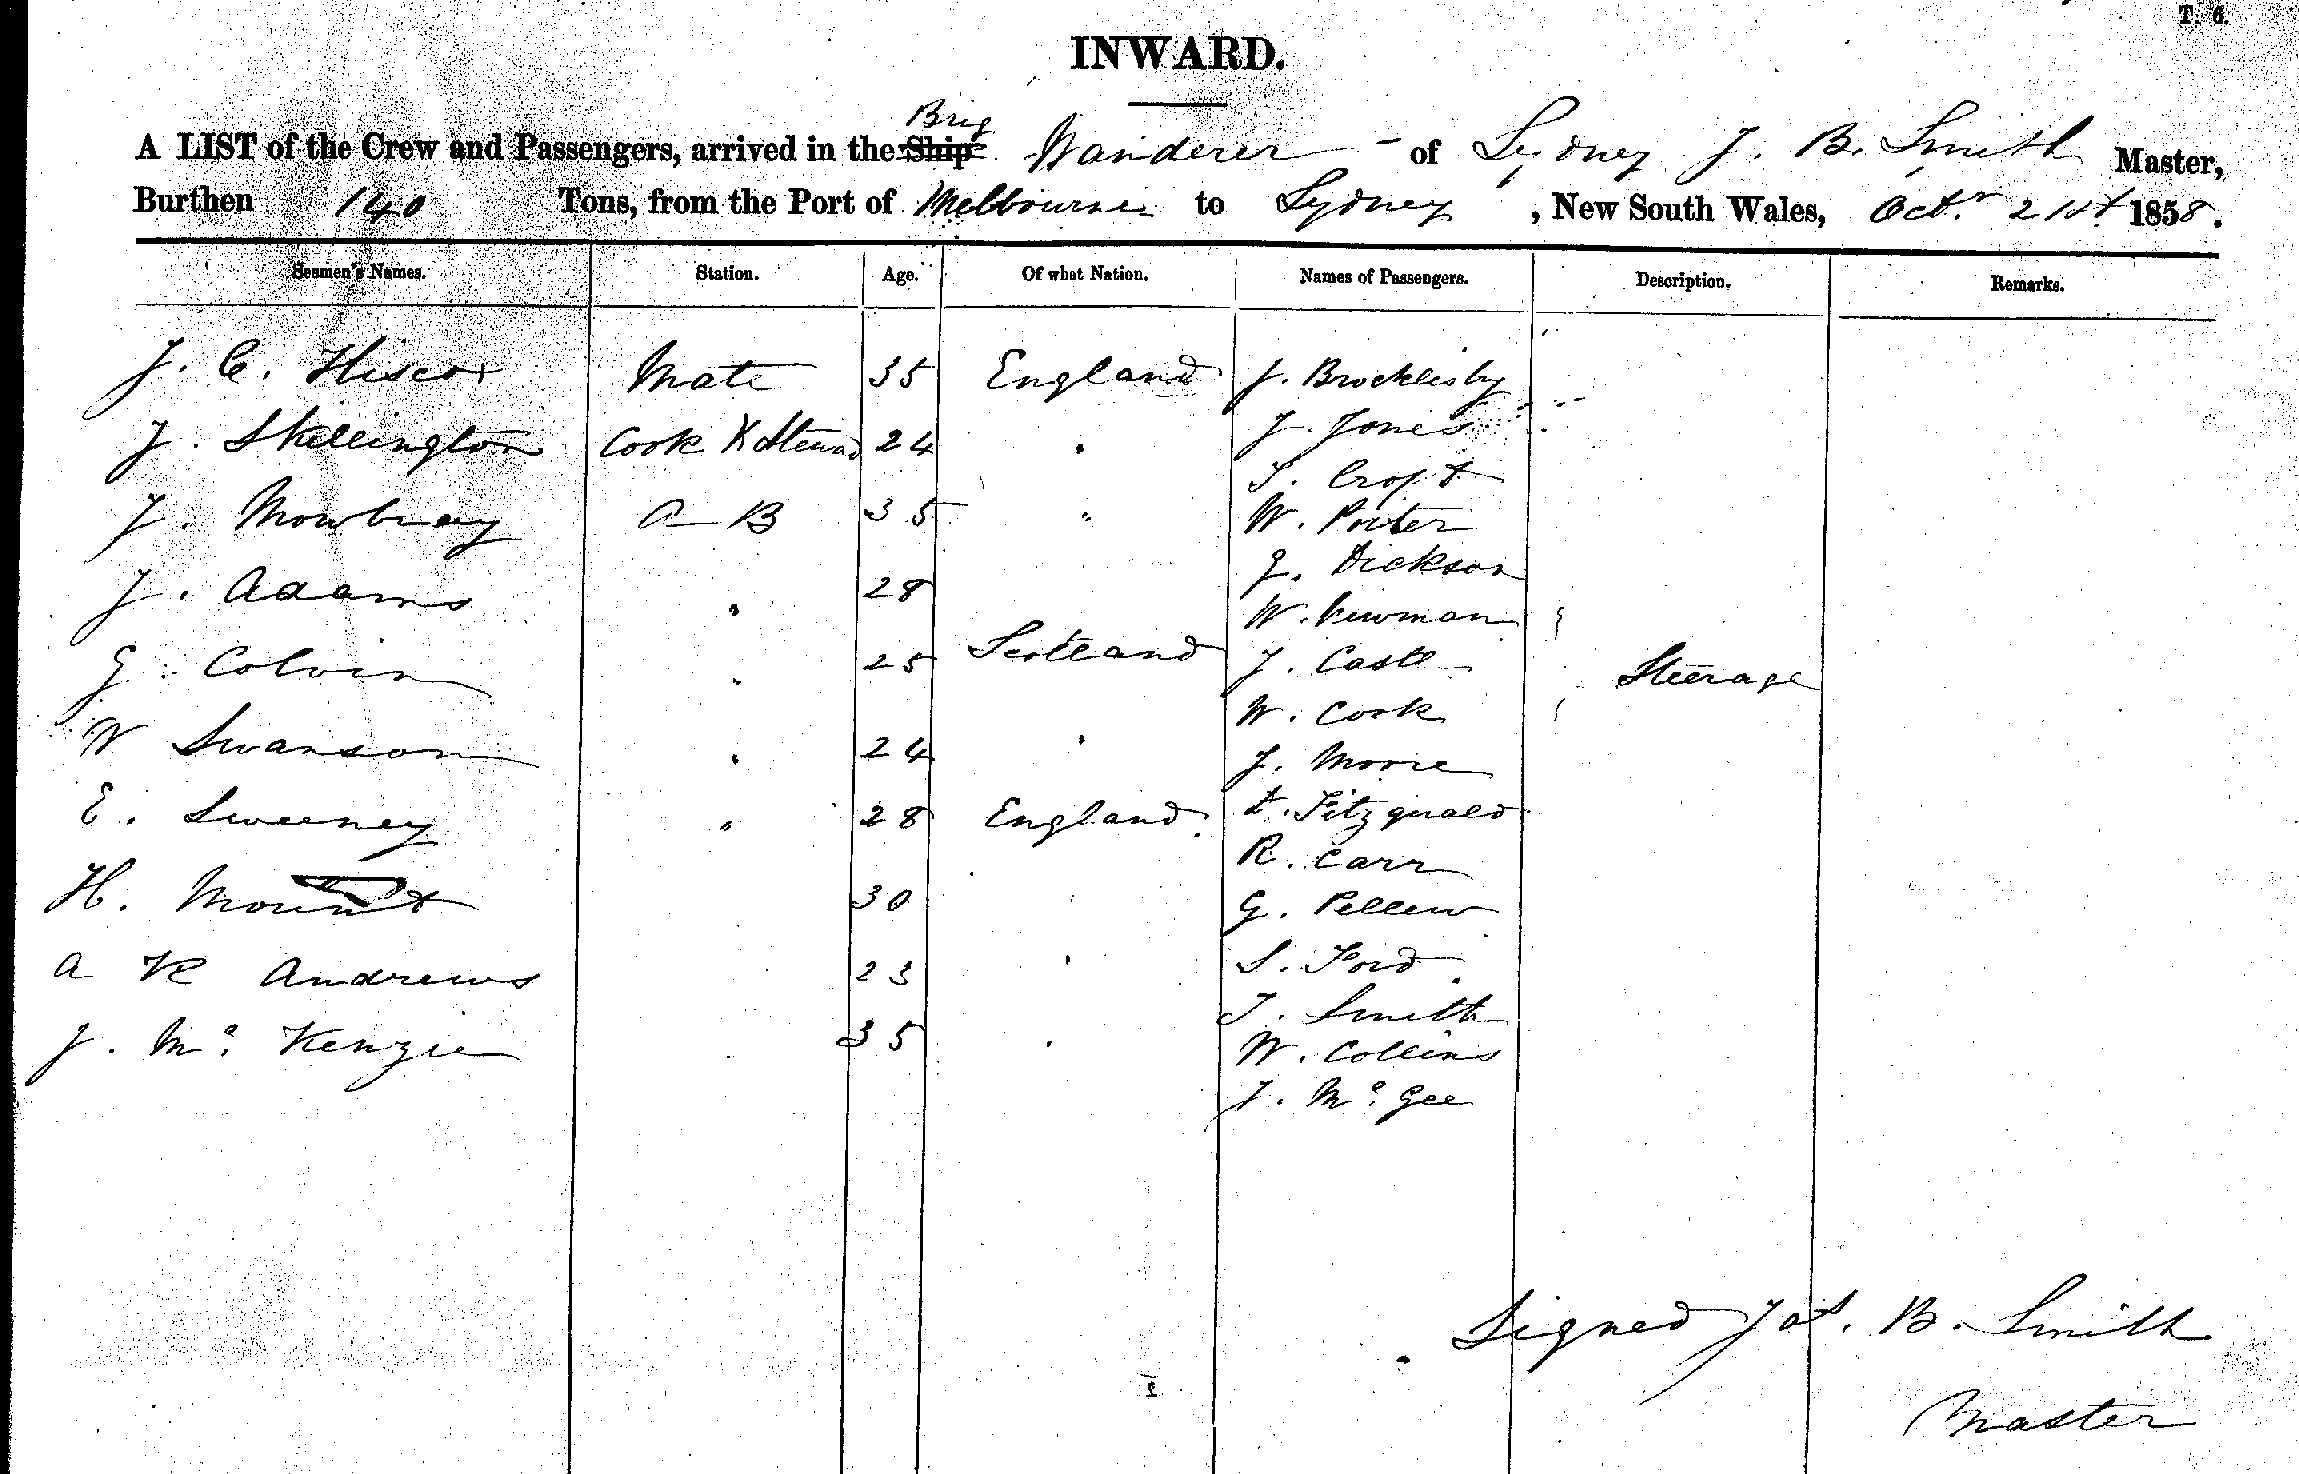 T. 6.
INWARD.
Brig
A LIST of the Crew and Passengers, arrived in the Ship Wanderer - of Sydney J. B. Smith Master,
Burthen 140 Tons, from the Port of Melbourne to Sydney, New South Wales, Octr. 21st 1858.
Seamen's Names. Station. Age. Of what Nation. Names of Passengers. Description. Remarks.
J. C. Hiscox Mate 35 England J. Brocklesby
J. Skellington Cook & Steward 24 " J. Jones
S. Croft
J. Mowbray A B 35 " W. Porter
G. Dickson
J. Adams " 28 W. Newman
G. Colvin " 25 Scotland J. Castle Steerage
W. Cook
W Swanson " 24 " J. Moore
E. Sweeney " 28 England D. Fitzgerald
R. Carr
H. Mount 30 G. Pellew
A R Andrews 23 " S. Ford
T. Smith
J. Mc. Kenzie 35 " W. Collins
J. Mc. Gee
Signed Jas. B. Smith
Master